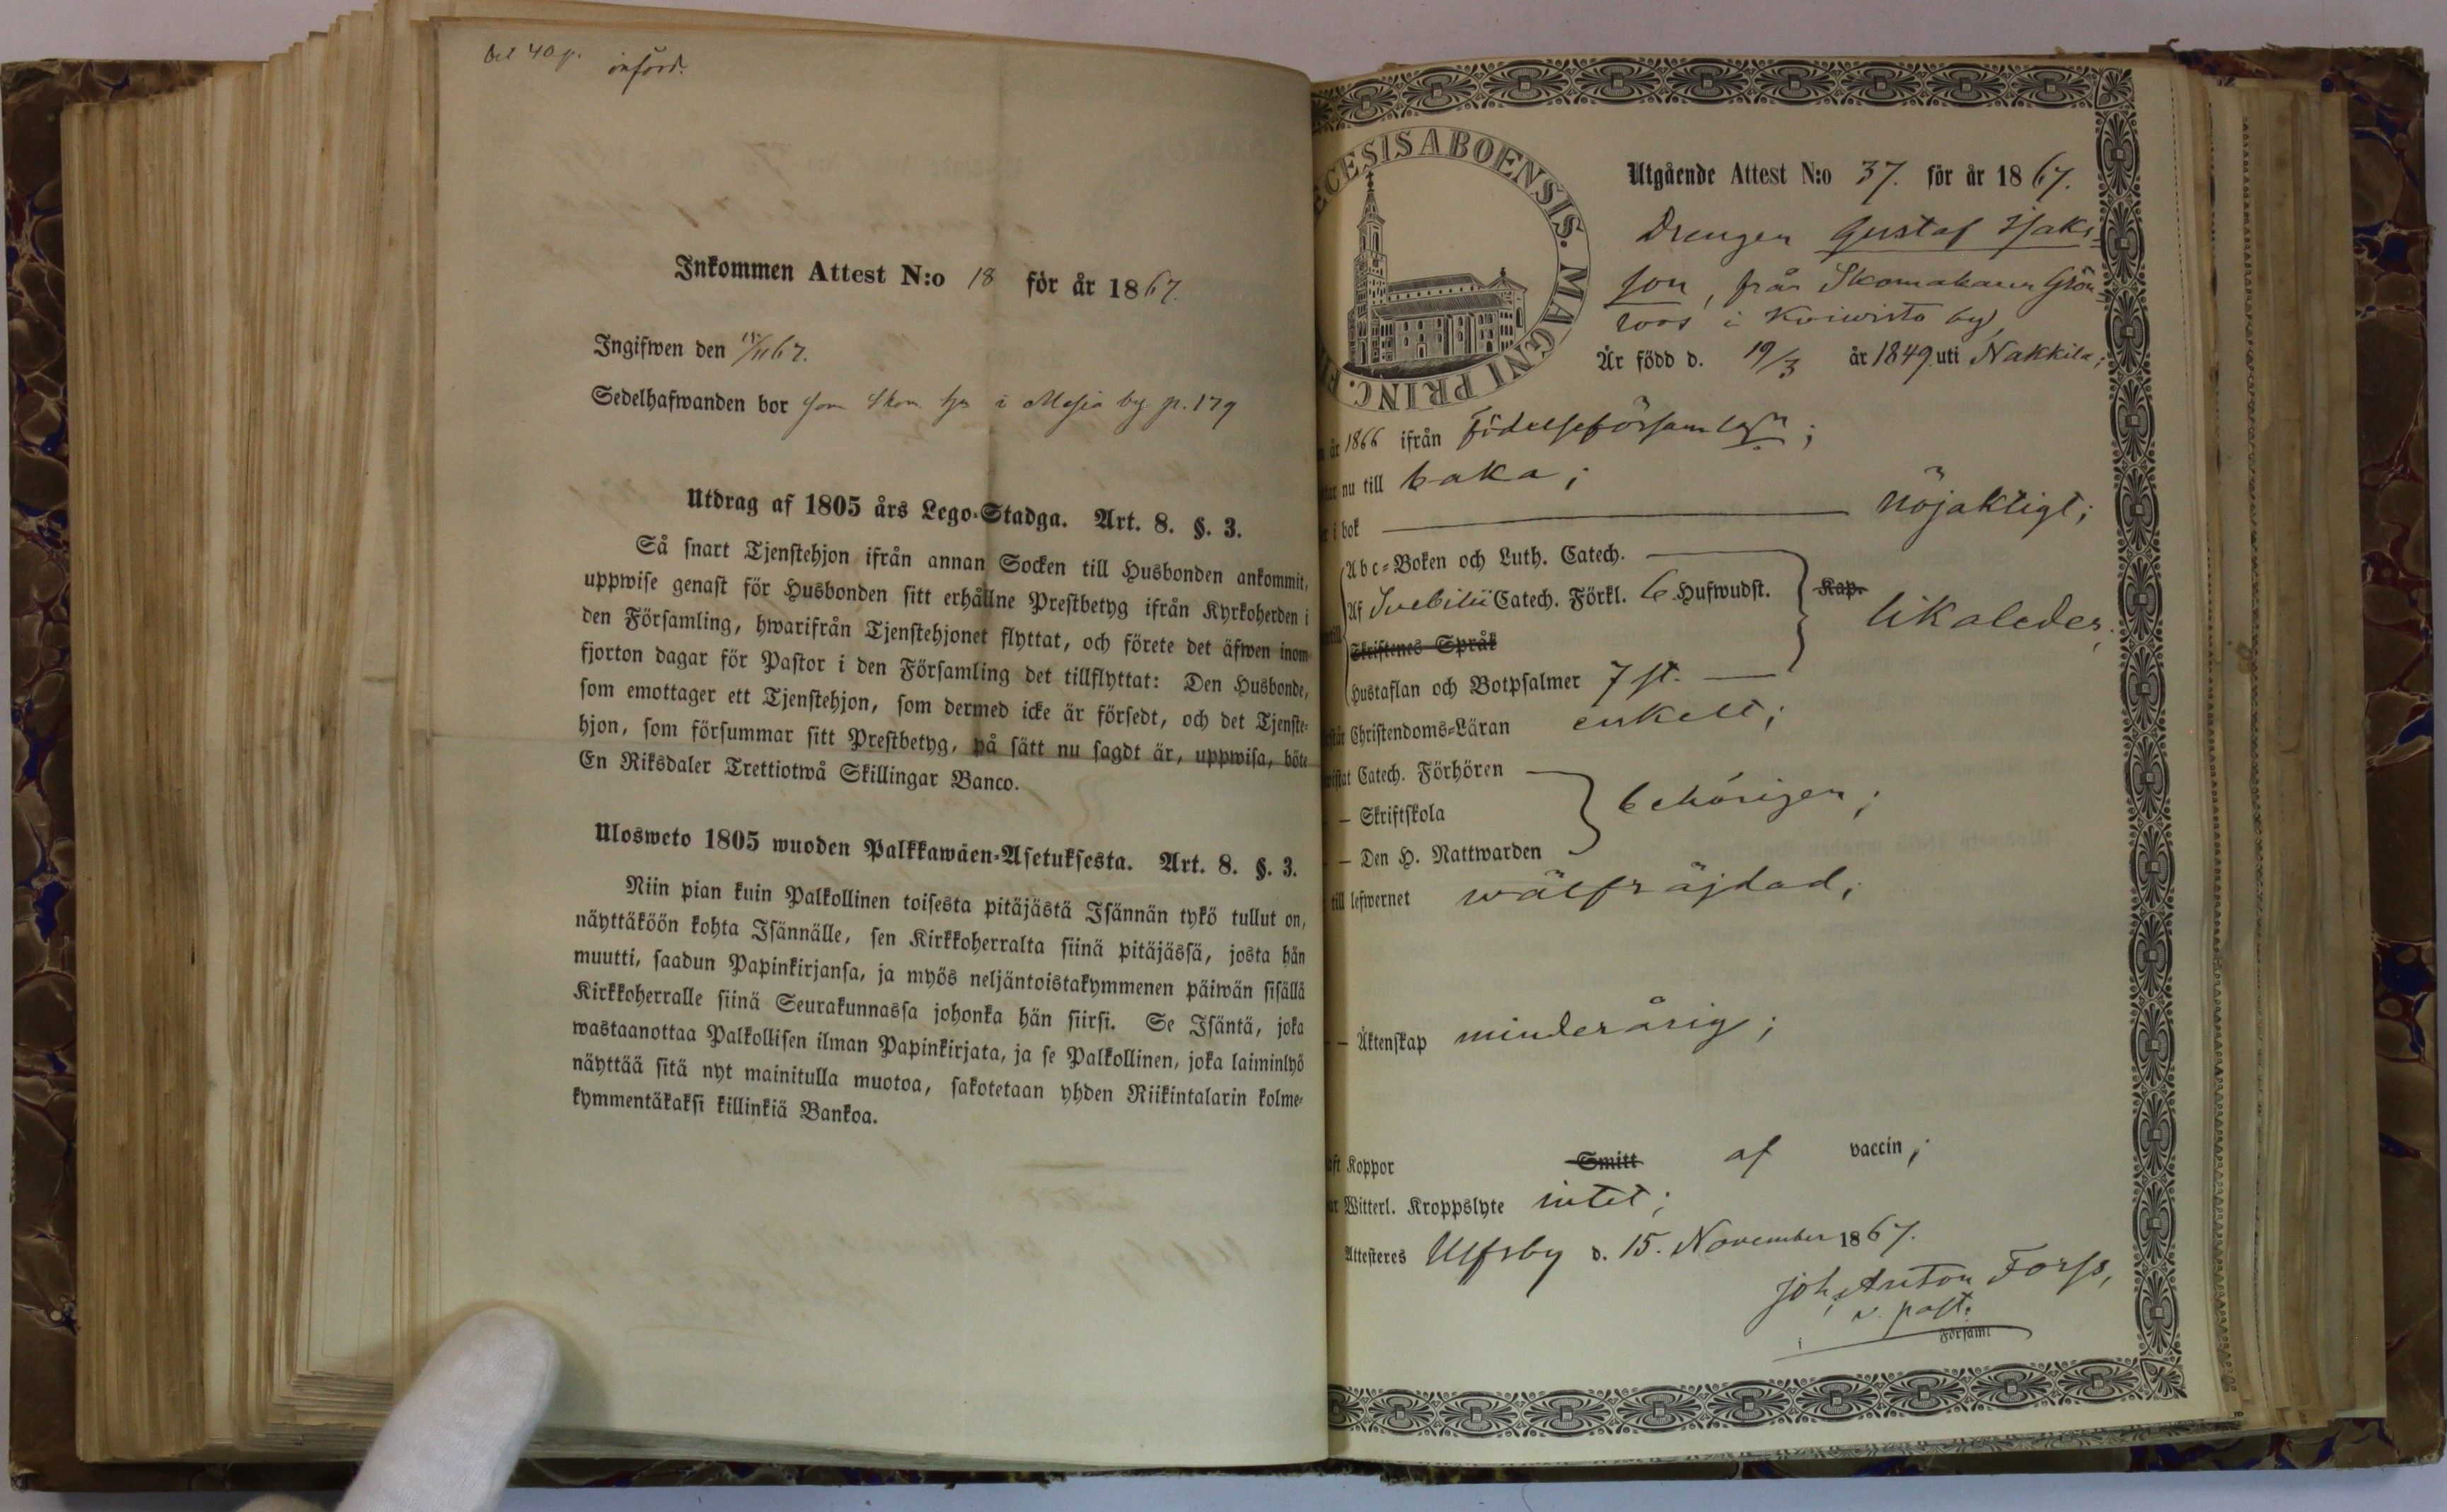 bet 40 p. införd.
Inkommen Attest N:o 18 för år 1867.
Ingifwen den /11 67.
Sedelhafwanden bor som i by p. 179
Utdrag af 1805 års Lego-Stadga. Art. 8. §. 3.
Så snart Tjenstehjon ifrån annan Socken till Husbonden ankommit,
uppwise genast för Husbonden sitt erhållne Prestbetyg ifrån Kyrkoherden i
den Församling, hwarifrån Tjenstehjonet flyttat, och förete det äfwen inom
fjorton dagar för Pastor i den Församling det tillflyttat: Den Husbonde,
som emottager ett Tjenstehjon, som dermed icke är försedt, och det Tjenste-
hjon, som försummar sitt Prestbetyg, på sätt nu sagdt är, uppwisa, böte
En Riksdaler Trettiotwå Skillingar Banco.
Ulosweto 1805 wuoden Palkkawäen-Asetuksesta. Art. 8. §. 3.
Niin pian kuin Palkollinen toisesta pitäjästä Isännän tykö tullut on,
näyttäköön kohta Isännälle, sen Kirkkoherralta siinä pitäjässä, josta hän
muutti, saadun Papinkirjansa, ja myös neljäntoistakymmenen päiwän sisällä
Kirkkoherralle siinä Seurakunnassa johonka hän siirsi. Se Isäntä, joka
wastaanottaa Palkollisen ilman Papinkirjata, ja se Palkollinen, joka laiminlyö
näyttää sitä nyt mainitulla muotoa, sakotetaan yhden Riikintalarin kolme-
kymmentäkaksi killinkiä Bankoa.
ECESIS ABOENSIS. MAGNI PRINC. FI
Utgående Attest N:o 37. för år 1867.
Drengen Gustaf Isaks-
son, från Skomakaren Grön-
roos i Koiwisto by,
Är född d. 19/3 år 1849 uti Nakkila;
år 1866 ifrån Födelseförsamlgn;
nu till baka;
i bok nöjaktigt;
Abc-Boken och Luth. Catech.
Af Svebilii Catech. Förkl. 6 Hufwudst. Kap. likaledes;
Skriftenes Språk
Hustaflan och Botpsalmer 7 st.
Christendoms-Läran enkelt;
Catech. Förhören
— Skriftskola behörigen;
— Den H. Nattwarden
till lefwernet wälfräjdad;
— Äktenskap minderårig;
Koppor Smitt af vaccin;
Witterl. Kroppslyte intet;
Attesteres Ulfsby d. 15. November 1867.
Joh. Anton Forss,
v. past.
i Församl